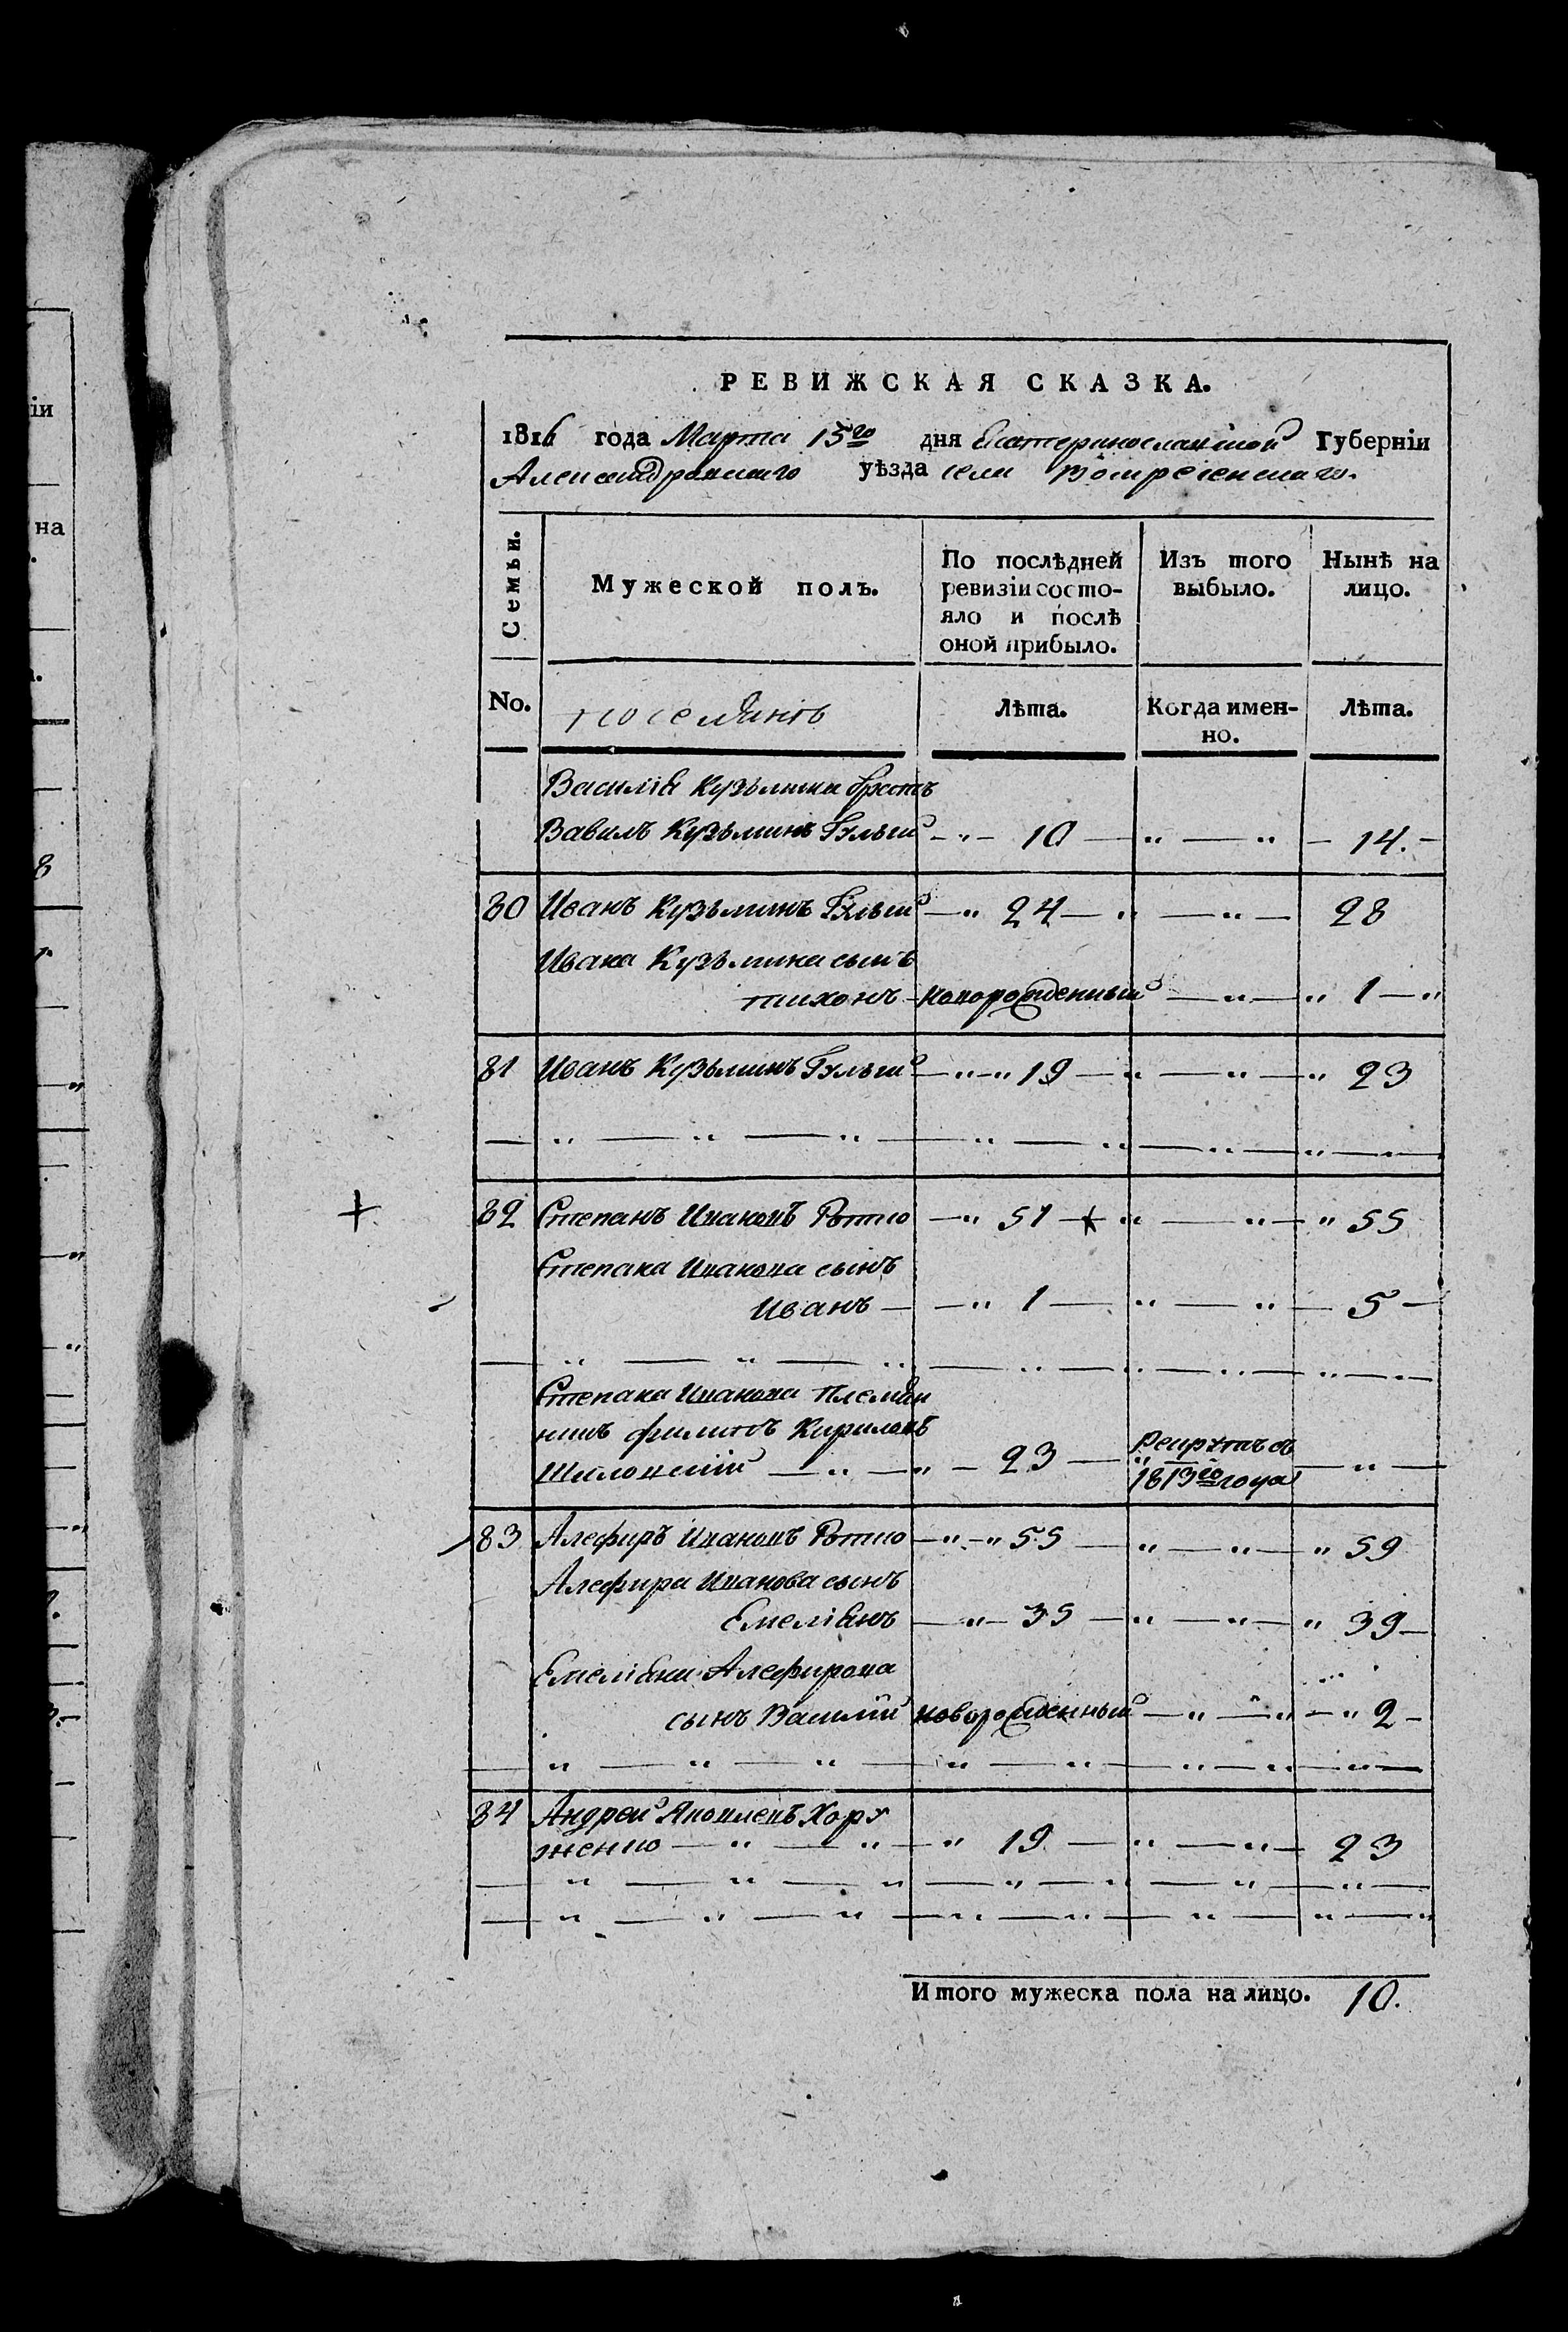 РЕВИЖСКАЯ СКАЗКА.
1816 года Марта 15го дня Екатеринославской Губерніи
Александровскаго уѣзда села Воскресенскаго.
Семьи.
Мужеской полъ.
По послѣдней ревизіи состо-
яло и послѣ
оной прибыло.
Изъ того
выбыло.
Нынѣ на
лицо.
No.
поселянъ
Лѣта.
Когда имен-
но.
Лѣта.
Василія Кузьмина братъ
Вавилъ Кузьминъ 10 14.
80 Иванъ Кузьминъ 24 28
Ивана Кузьмина сынъ
тихонъ новорожденный 1
81 Иванъ Кузьминъ 19 23
82 Степанъ Ивановъ 51 55
Степана Иванова сынъ
Иванъ 1 5
Степана Иванова племян
никъ Кириловъ
23 Рекрутъ съ
1813го года
83 Алефиръ Ивановъ 55 59
Алефира Иванова сынъ
Емеліянъ 35 39
Емеліяна Алефирова
сынъ Василій новорожденный 2
84 Андрей Яковлевъ Хору
женко 19 23
Итого мужеска пола на лицо. 10.
іи
на
8